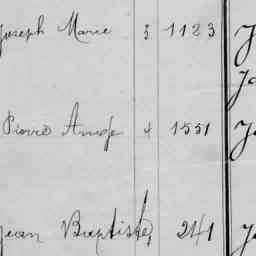 Joseph Marie 3 1123 J
Ja
Pierre Ange 4 1551 Ja
Jean Baptiste 241 Ja